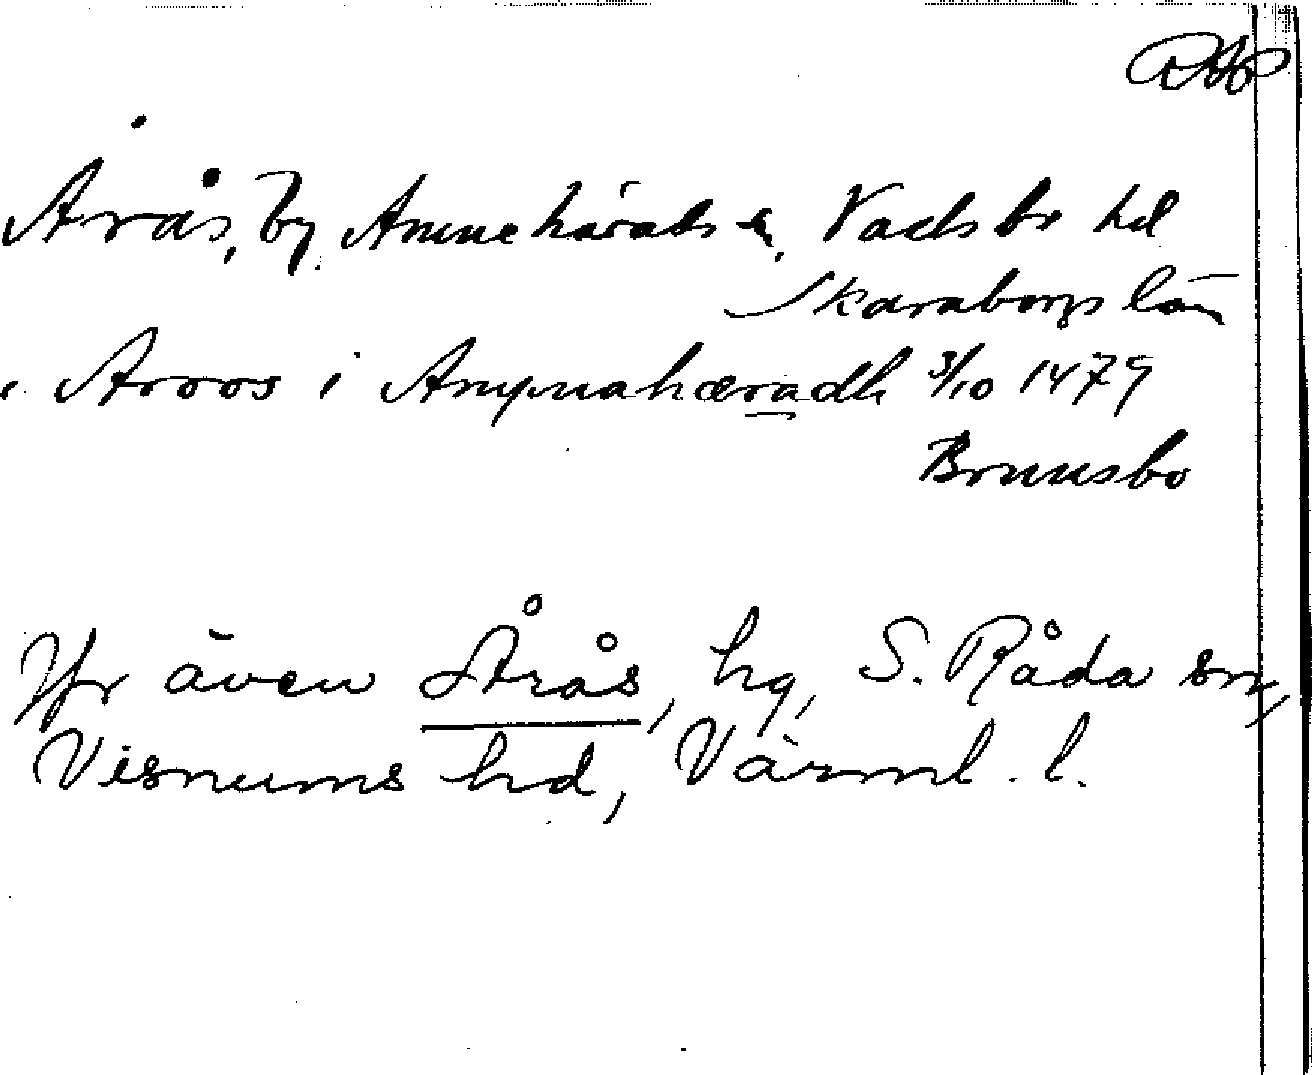 Årås, by, Amnehärads sn, Vadsbo hd
Skaraborgs län
i Aroos i Amynahæradh 3/10 1479
Brunsbo
Jfr även Årås, hg, S. Råda sn,
Visnums hd, Värml. l.